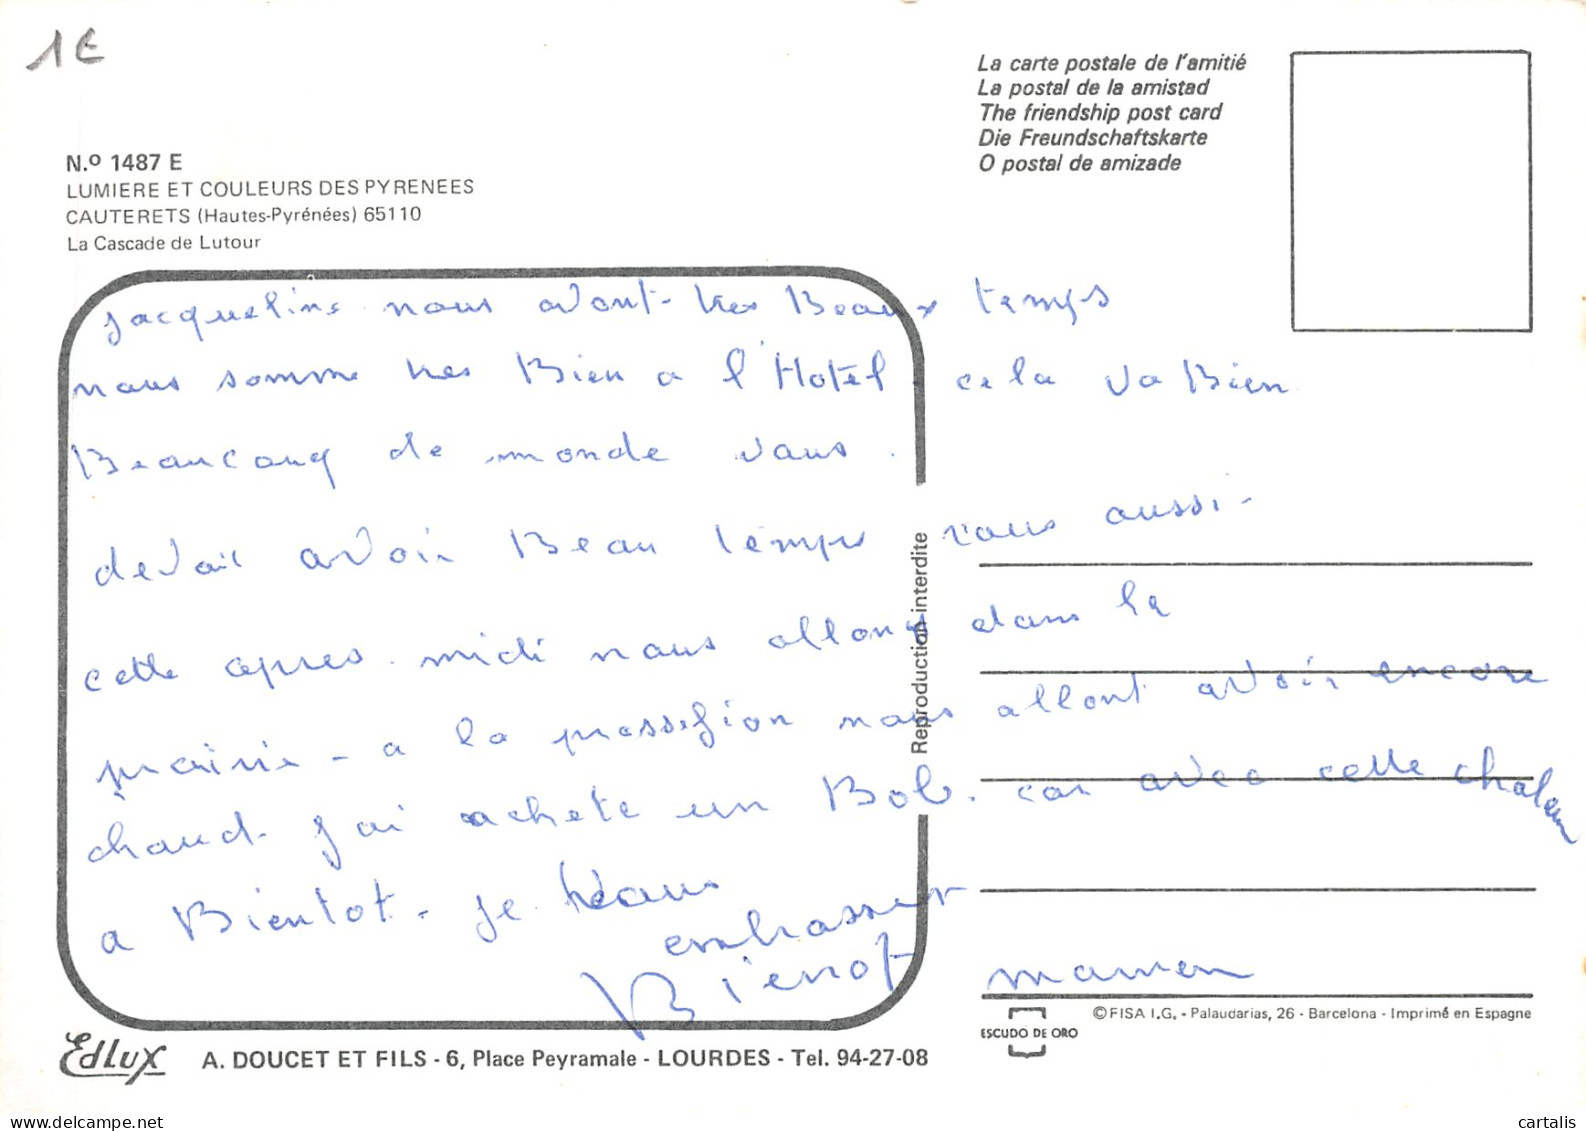 1€
La carte postale de l'amitié
La postal de la amistad
The friendship post card
Die Freundschaftskarte
O postal de amizade
N.º 1487 E
LUMIERE ET COULEURS DES PYRENEES
CAUTERETS (Hautes-Pyrénées) 65110
La Cascade de Lutour
Jacqueline nous avont tres Beaux temps
nous somme tres Bien a l'Hotel. cela va Bien
Beaucoup de monde vous.
devait avoir Beau temps vous aussi-
cette apres-midi nous allons dans la
prairie - a la prossesion nous allont avoir encore
chaud. J'ai achete un Bob. car avec cette chaleur
a Bientot. je vous
embrasser
Bientot maman
Reproduction interdite
EdLux
A. DOUCET ET FILS - 6, Place Peyramale - LOURDES - Tel. 94-27-08
ESCUDO DE ORO
©FISA I.G. - Palaudarias, 26 - Barcelona - Imprimé en Espagne
cartalis